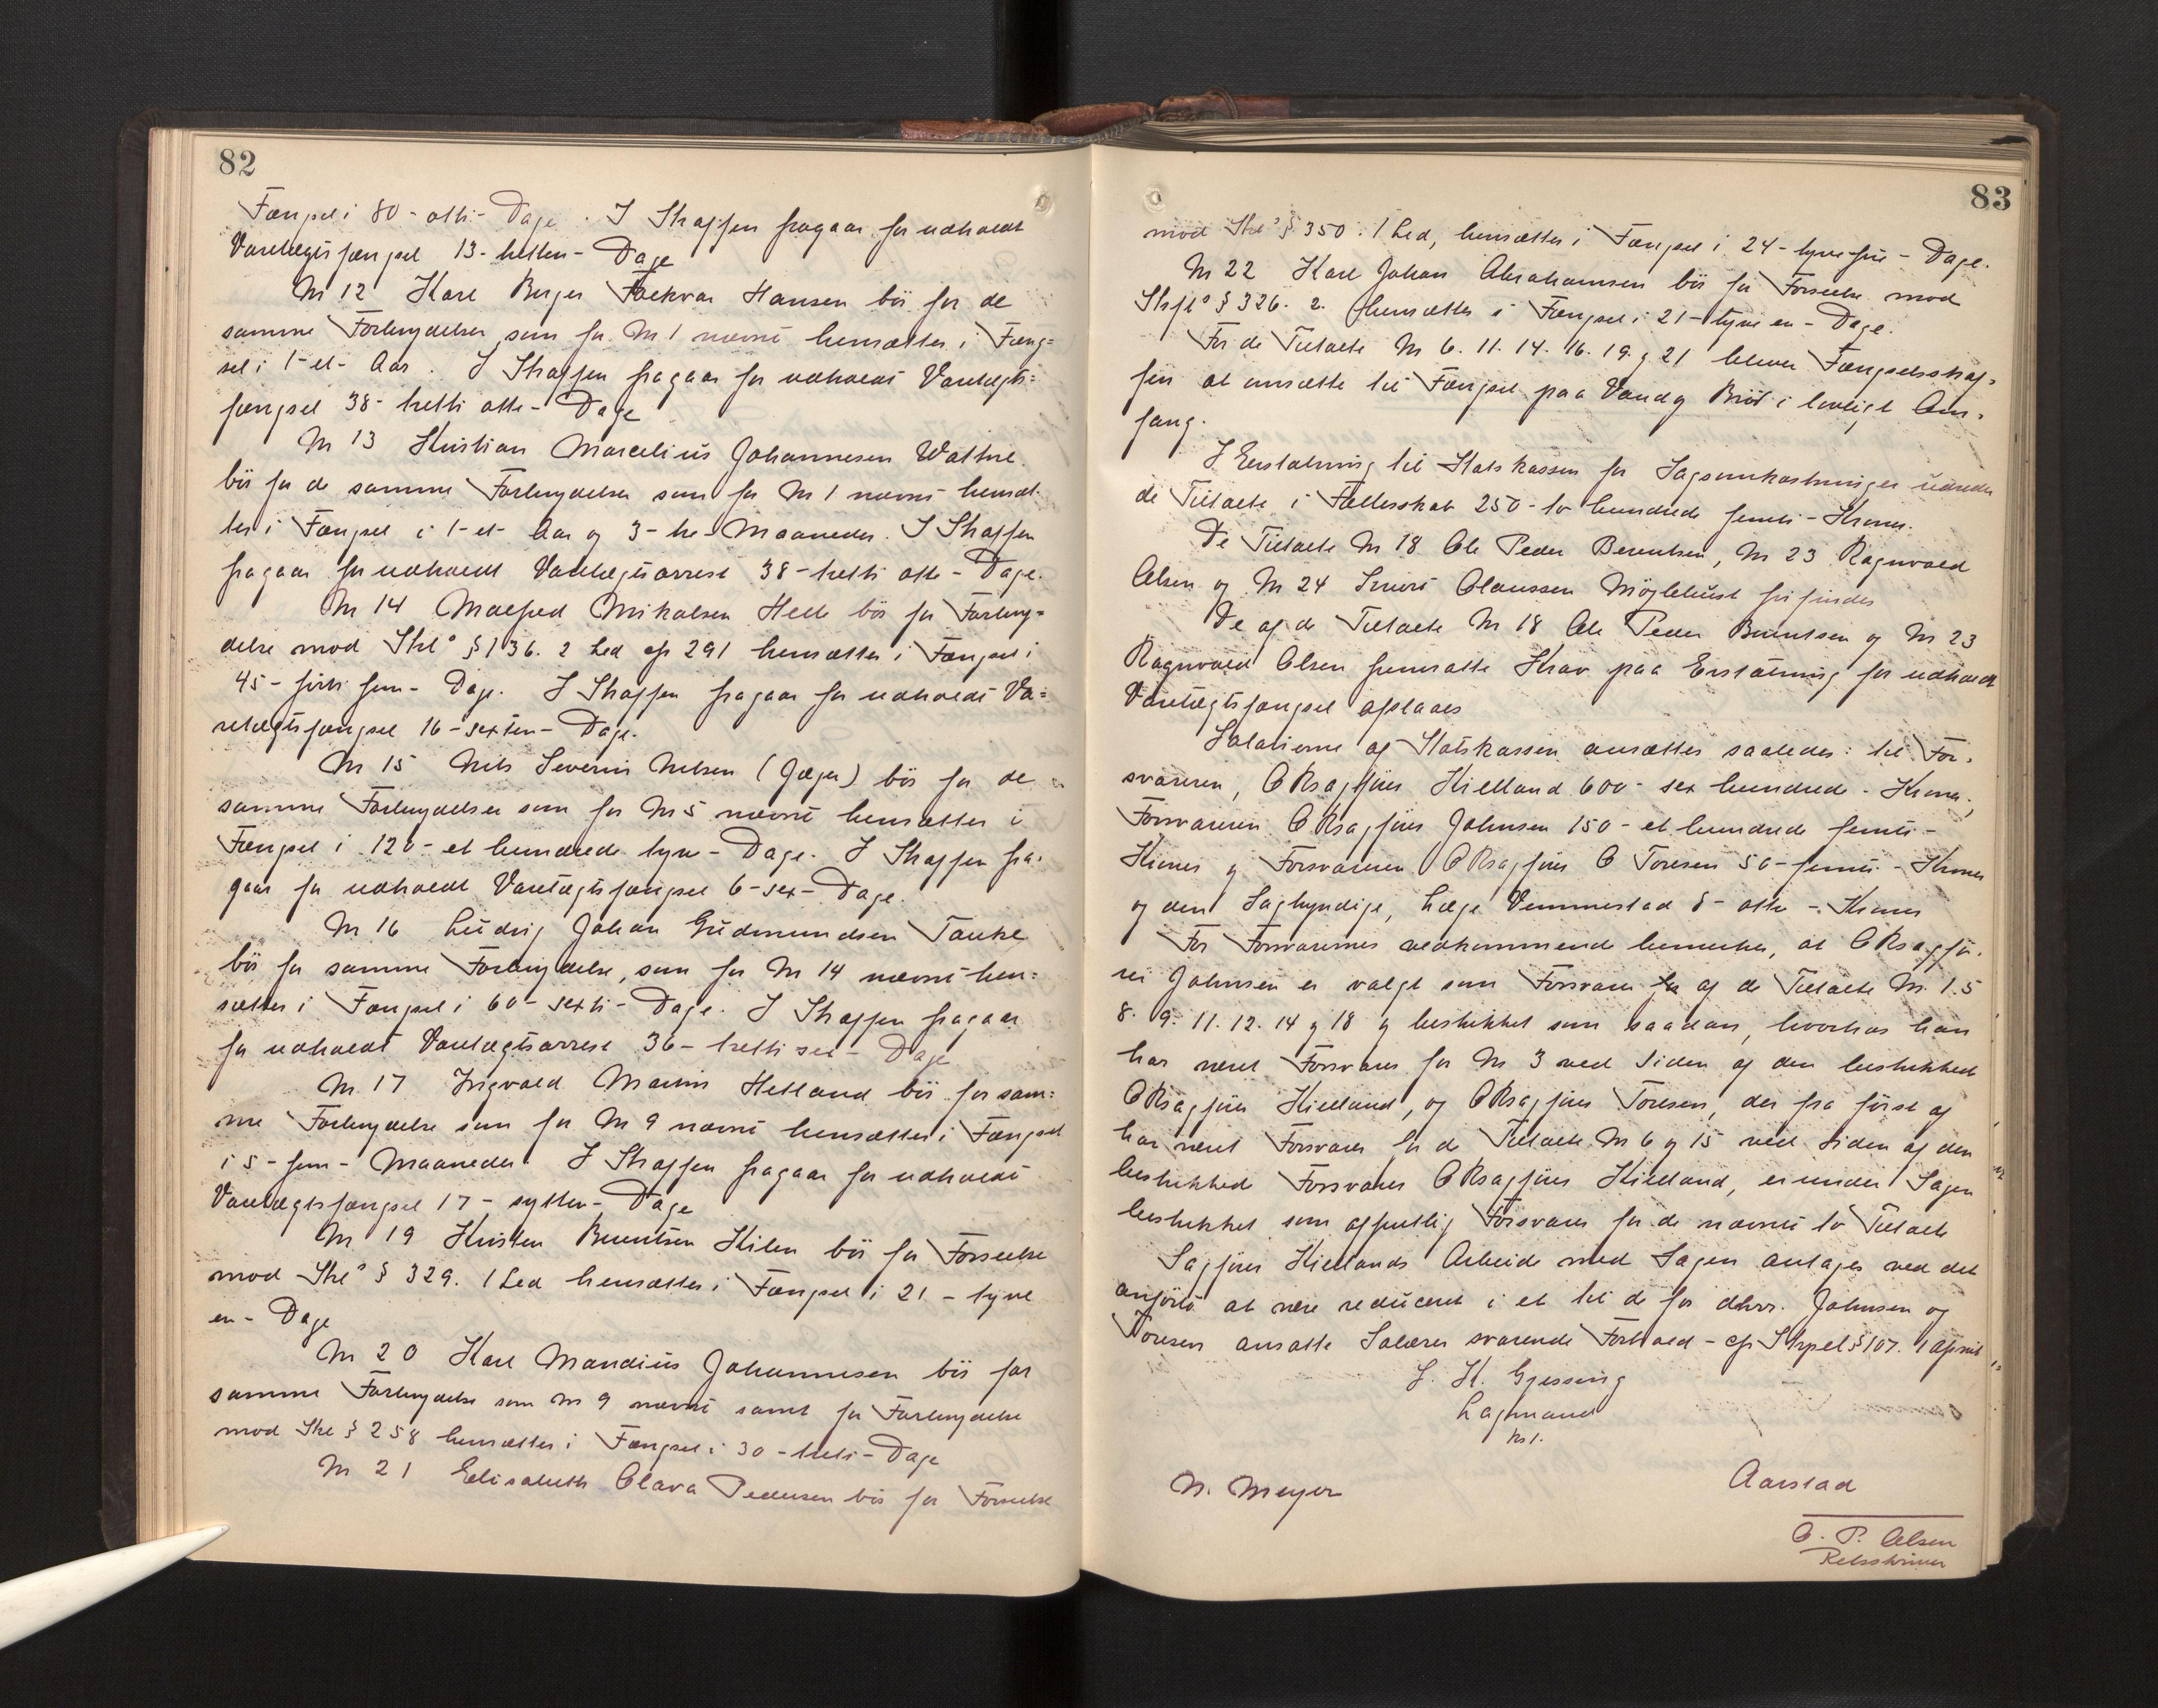 82
Fængsel i 80 - otti - Dage. I Straffen fragaar for udholdt
Varetægtsfængsel 13 - tretten - Dage
No 12 Karl Berger Falkvar Hansen bör for de
samme Forbrydelser som for No 1 nævnt hensættes i Fæng=
sel i 1 - et - Aar. I Straffen fragaar for udholdt Varetægts=
fængsel 38 - tretti otte - Dage
No 13 Kristian Marcelius Johannesen Wathne
bör for de samme Forbrydelser som for No 1 nævnt hensæt-
tes i Fængsel i 1 - et - Aar og 3 - tre - Maaneder. I Straffen
fragaar for udholdt Varetægtsarrest 38 - tretti otte - Dage.
No 14 Malfred Mikalsen Helle bör for Forbry=
delse mod Strl° § 136. 2 Led cfr 291 hensættes i Fængsel i
45 - förti fem - Dage. I Straffen fragaar for udholdt Va=
retægtsfængsel 16 - sexten - Dage.
No 15 Nils Severin Nelsen (Jæger) bör for de
samme Forbrydelser som for No 5 nævnt hensættes i
Fængsel i 120 - et hundrede tyve - Dage. I Straffen fra=
gaar for udholdt Varetægtsfængsel 6 - sex - Dage.
No 16 Ludvig Johan Gudmundsen Tauke
bör for samme Forbrydelse, som for No 14 nævnt hen=
sættes i Fængsel i 60 - sexti - Dage. I Straffen fragaar
for udholdt Varetægtsarrest 36 - tretti sex - Dage
No 17 Ingvald Martin Hetland bör for sam=
me Forbrydelse som for No 9 nævnt hensættes i Fængsel
i 5 - fem - Maaneder. I Straffen fragaar for udholdt
Varetægtsfængsel 17 - sytten - Dage
No 19 Kristen Berentsen Kilen bör for Forseelse
mod Strl° § 329. 1 Led hensættes i Fængsel i 21 - tyve
en - Dage
No 20 Karl Mandius Johannesen bör for
samme Forbrydelse som No 9 nævnt samt for Forbrydelse
mod Strl § 258 hensættes i Fængsel i 30 - treti - Dage
No 21 Elisabeth Olava Pedersen bör for Forseelse
83
mod Strl° § 350. 1 Led, hensættes i Fængsel i 24 - tyve fire - Dage.
No 22 Karl Johan Abrahamsen bör for Forseelse mod
Strfl° § 326. 2. hensættes i Fængsel i 21 - tyve en - Dage.
For de Tiltalte No 6. 11. 14. 16. 19. g 21 bliver Fængselsstraf=
fen at omsætte til Fængsel paa Vand og Bröd i lovligt Om=
fang.
I Erstatning til Statskassen for Sagsomkostninger udreder
de Tiltalte i Fællesskab 250 - to hundrede femti - Kroner.
De Tiltalte No 18 Ole Peder Berentsen, No 23 Ragnvald
Olsen og No 24 Sivert Olaussen Möglebust frifindes
De af de Tiltalte No 18 Ole Peder Berentsen og No 23
Ragnvald Olsen fremsatte Krav paa Erstatning for udholdt
Varetægtsfængsel afslaaes
Salarierne af Statskassen ansættes saaledes: til For-
svareren, ORsagförer Kielland 600 - sex hundrede - Kroner,
Forsvareren ORsagförer Johnsen 150 - et hundrede femti -
Kroner og Forsvareren ORsagförer O Toresen 50 - femti - Kroner
og den Sagkyndige, Læge Vemmestad 8 - otte - Kroner
For Forsvarernes vedkommende bemerkes, at ORsagfö-
rer Johnsen er valgt som Forsvarer af de Tiltalte No. 1. 5
8. 9. 11. 12. 14 g 18 g beskikket som saadan, hvorhos han
har været Forsvarer for No 3 ved Siden af den beskikkede
ORsagförer Kielland, og ORsagförer Toresen, der fra först af
har været Forsvarer for de Tiltalte No 6 g 15 ved Siden af den
beskikkede Forsvarer ORsagförer Kielland, er under Sagen
beskikket som offentlig Forsvarer for de nævnte to Tiltalte
Sagförer Kiellands Arbeide med Sagen antages ved det
anförte at være reduceret i et til de for dhrr. Johnsen og
Toresen ansatte Salærer svarende Forhold - cfr Strpel § 107. 1 Afsnit
J. K. Gjessing
Lagmand
kst.
N. Meyer
Aarstad
O. P. Olsen
Retsskriver